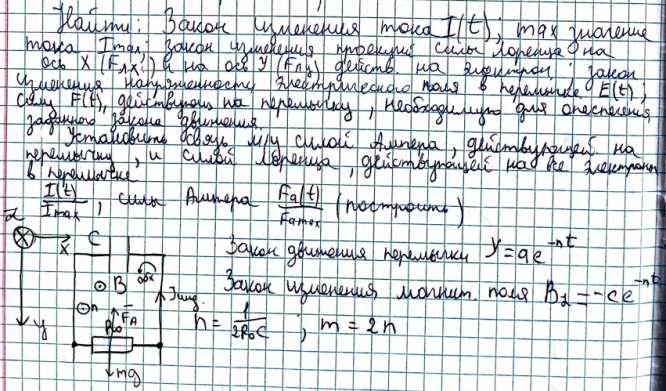 Найти: Закон изменения тока I(t); max значение
тока Imax; закон изменения проекций силы Лоренца на
ось X (Fлx) и на ось У (Fлy) действ. на электрон; закон
изменения напряженности электрического поля в перемычке E(t);
силу F(t), действующ на перемычку, необходимую для опеспечения
заданного закона движения.
Установить связь м/у силой Ампера, действующей на
перемычку, и силой Лоренца, действующей на все электроны
в перемычке
I(t)/Imax ; силы Ампера Fa(t)/Famax (построить)
Z X C
Закон движения перемычки y = ae^-nt
B Iинд.
Закон изменения магнит. поля Bz = -ce^-nt
n FA
n = 1/2R₀C ; m = 2n
y R₀
mg